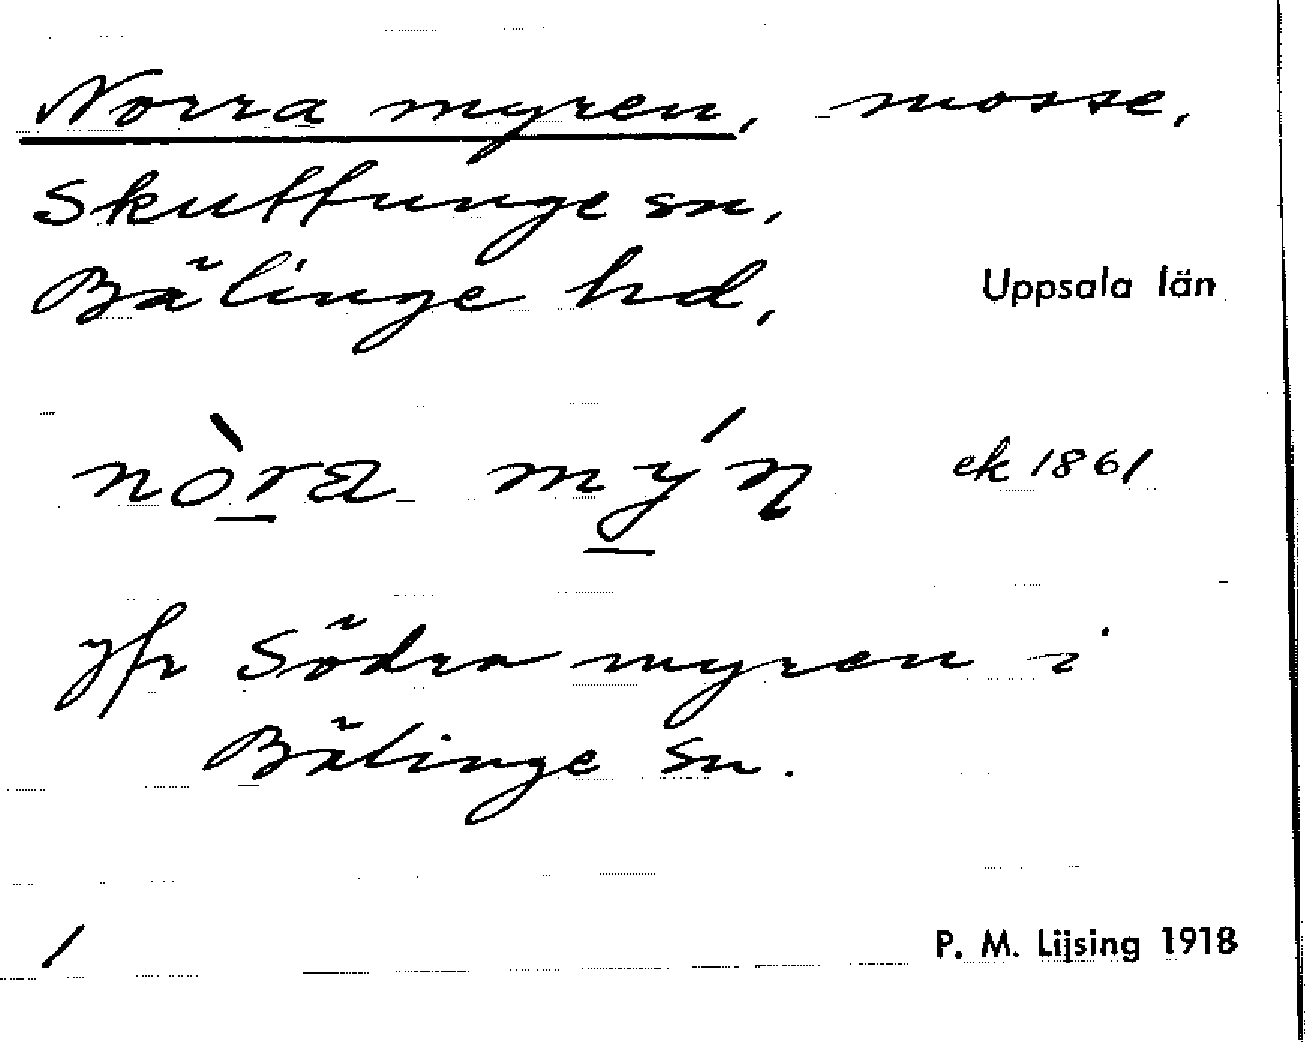 Norra myren, mosse,
Skuttunge sn,
Bälinge hd, Uppsala län
nò̱ra mý̱n ek 1861
jfr Södra myren i
Bälinge sn.
/ P. M. Lijsing 1918